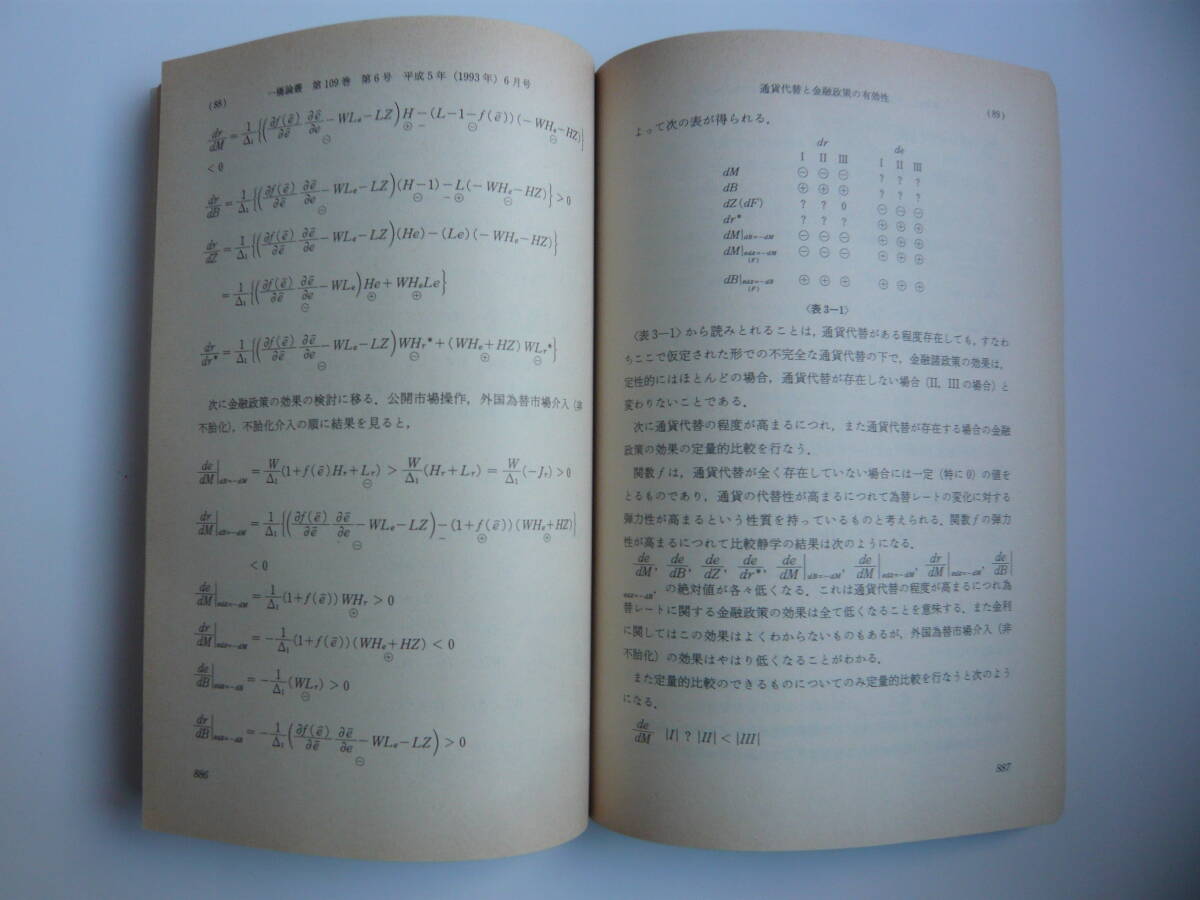 一橋論叢 第109巻 第6号 平成5年(1993年)6月号
(88)
dr/dM = 1/Δ₁{(∂f(ē)/∂ē ∂ē/∂e − WLₑ − LZ)H − (L−1−f(ē))(−WHₑ−HZ)}
⊖ ⊕ − ⊖ ⊖
< 0
dr/dB = 1/Δ₁{(∂f(ē)/∂ē ∂ē/∂e − WLₑ − LZ)(H−1) − L(−WHₑ−HZ)} > 0
⊖ ⊖ − ⊕ ⊖
dr/dZ = 1/Δ₁{(∂f(ē)/∂ē ∂ē/∂e − WLₑ − LZ)(He) − (Le)(−WHₑ−HZ)}
= 1/Δ₁{(∂f(ē)/∂ē ∂ē/∂e − WLₑ)He + WHₑLe}
⊖ ⊕ ⊕
dr/dr* = 1/Δ₁{(∂f(ē)/∂ē ∂ē/∂e − WLₑ − LZ)WHᵣ* + (WHₑ+HZ)WLᵣ*}
⊖ ⊖ ⊕ ⊖
次に金融政策の効果の検討に移る.公開市場操作,外国為替市場介入(非
不胎化),不胎化介入の順に結果を見ると,
de/dM|dB=−dM = W/Δ₁(1+f(ē)Hᵣ+Lᵣ) > W/Δ₁(Hᵣ+Lᵣ) = W/Δ₁(−Jᵣ) > 0
⊖
dr/dM|dB=−dM = 1/Δ₁{(∂f(ē)/∂ē ∂ē/∂e − WLₑ − LZ) − (1+f(ē))(WHₑ+HZ)}
⊖ − ⊕ ⊕
< 0
de/dM|edZ=−dM = 1/Δ₁(1+f(ē))WHᵣ > 0
⊕
dr/dM|edZ=−dM = −1/Δ₁(1+f(ē))(WHₑ+HZ) < 0
⊕
de/dB|edZ=−dB = −1/Δ₁(WLᵣ) > 0
⊖
dr/dB|edZ=−dB = −1/Δ₁(∂f(ē)/∂ē ∂ē/∂e − WLₑ − LZ) > 0
⊖
886
通貨代替と金融政策の有効性
(89)
よって次の表が得られる.
dr de
I II III I II III
dM ⊖ ⊖ ⊖ ? ? ?
dB ⊕ ⊕ ⊕ ? ? ?
dZ(dF) ? ? 0 ⊖ ⊖ ⊖
dr* ? ? ? ⊕ ⊕ ⊕
dM|dB=−dM ⊖ ⊖ ⊖ ⊕ ⊕ ⊕
dM|edZ=−dM (F) ⊖ ⊖ ⊖ ⊕ ⊕ ⊕
dB|edZ=−dB (F) ⊕ ⊕ ⊕ ⊕ ⊕ ⊕
〈表3―1〉
〈表3―1〉から読みとれることは,通貨代替がある程度存在しても,すなわ
ちここで仮定された形での不完全な通貨代替の下で,金融諸政策の効果は,
定性的にはほとんどの場合,通貨代替が存在しない場合(II,IIIの場合)と
変わりないことである.
次に通貨代替の程度が高まるにつれ,また通貨代替が存在する場合の金融
政策の効果の定量的比較を行なう.
関数fは,通貨代替が全く存在していない場合には一定(特に0)の値を
とるものであり,通貨の代替性が高まるにつれて為替レートの変化に対する
弾力性が高まるという性質を持っているものと考えられる.関数fの弾力
性が高まるにつれて比較静学の結果は次のようになる.
de/dM, de/dB, de/dZ, de/dr*, de/dM|dB=−dM, de/dM|edZ=−dM, dr/dM|edZ=−dM, de/dB|
edZ=−dB, の絶対値が各々低くなる.これは通貨代替の程度が高まるにつれ為
替レートに関する金融政策の効果は全て低くなることを意味する.また金利
に関してはこの効果はよくわからないものもあるが,外国為替市場介入(非
不胎化)の効果はやはり低くなることがわかる.
また定量的比較のできるものについてのみ定量的比較を行なうと次のよう
になる.
de/dM |I| ? |II| < |III|
887